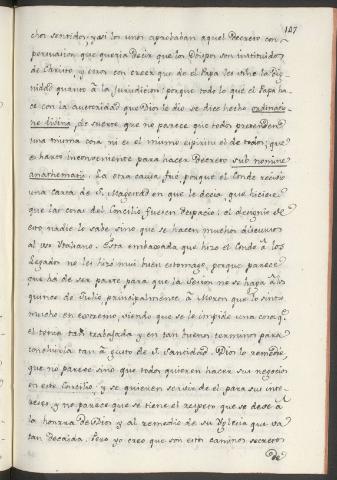 147
chos sentidos, y assi los unos aprobaban aquel Decreto con
persuasion que queria decir que los Obispos son instituidos
de Christo, y error con creer que de el Papa les viene la Dig-
nidad quanto à la Jurisdicion; porque todo lo que el Papa ha-
ce con la autoridad que Dios le dio se dice hecho ordinatio-
ne divina, de suerte, que no parece que todos pretenden
una misma cosa, ni es el mismo espiritu el de todos; que
es harto inconveniente para hacer Decreto sub nomine
anathematis. La otra causa fué porque el Conde recivio
una carta de S. Magestad en que le decia, que hiciese
que las cosas del Concilio fuesen despacio: el designio de
esto nadie lo sabe sino que se hacen muchos discursos
al uso Italiano. Esta embaxada que hizo el Conde à los
Legados no les hizo mui buen estomago, porque parece
que ha de ser parte para que la Sesion no se haga à los
quince de Julio, principalmente à Moron que lo sintio
mucho en extremo, viendo que se le impide una cosa q.
el tenia tan trabajada y en tan buenos terminos para
concluirla tan à gusto de su Santidad. Dios lo remedie,
que no parese sino que todos quieren hacer sus negocios
en este Concilio, y se quieren servir de el para sus inte-
reses, y no parece que se tiene el respeto que se debe à
la honrra de Dios y al remedio de su Yglesia que va
tan decaida. Pero yo creo que son estos caminos secretos
de